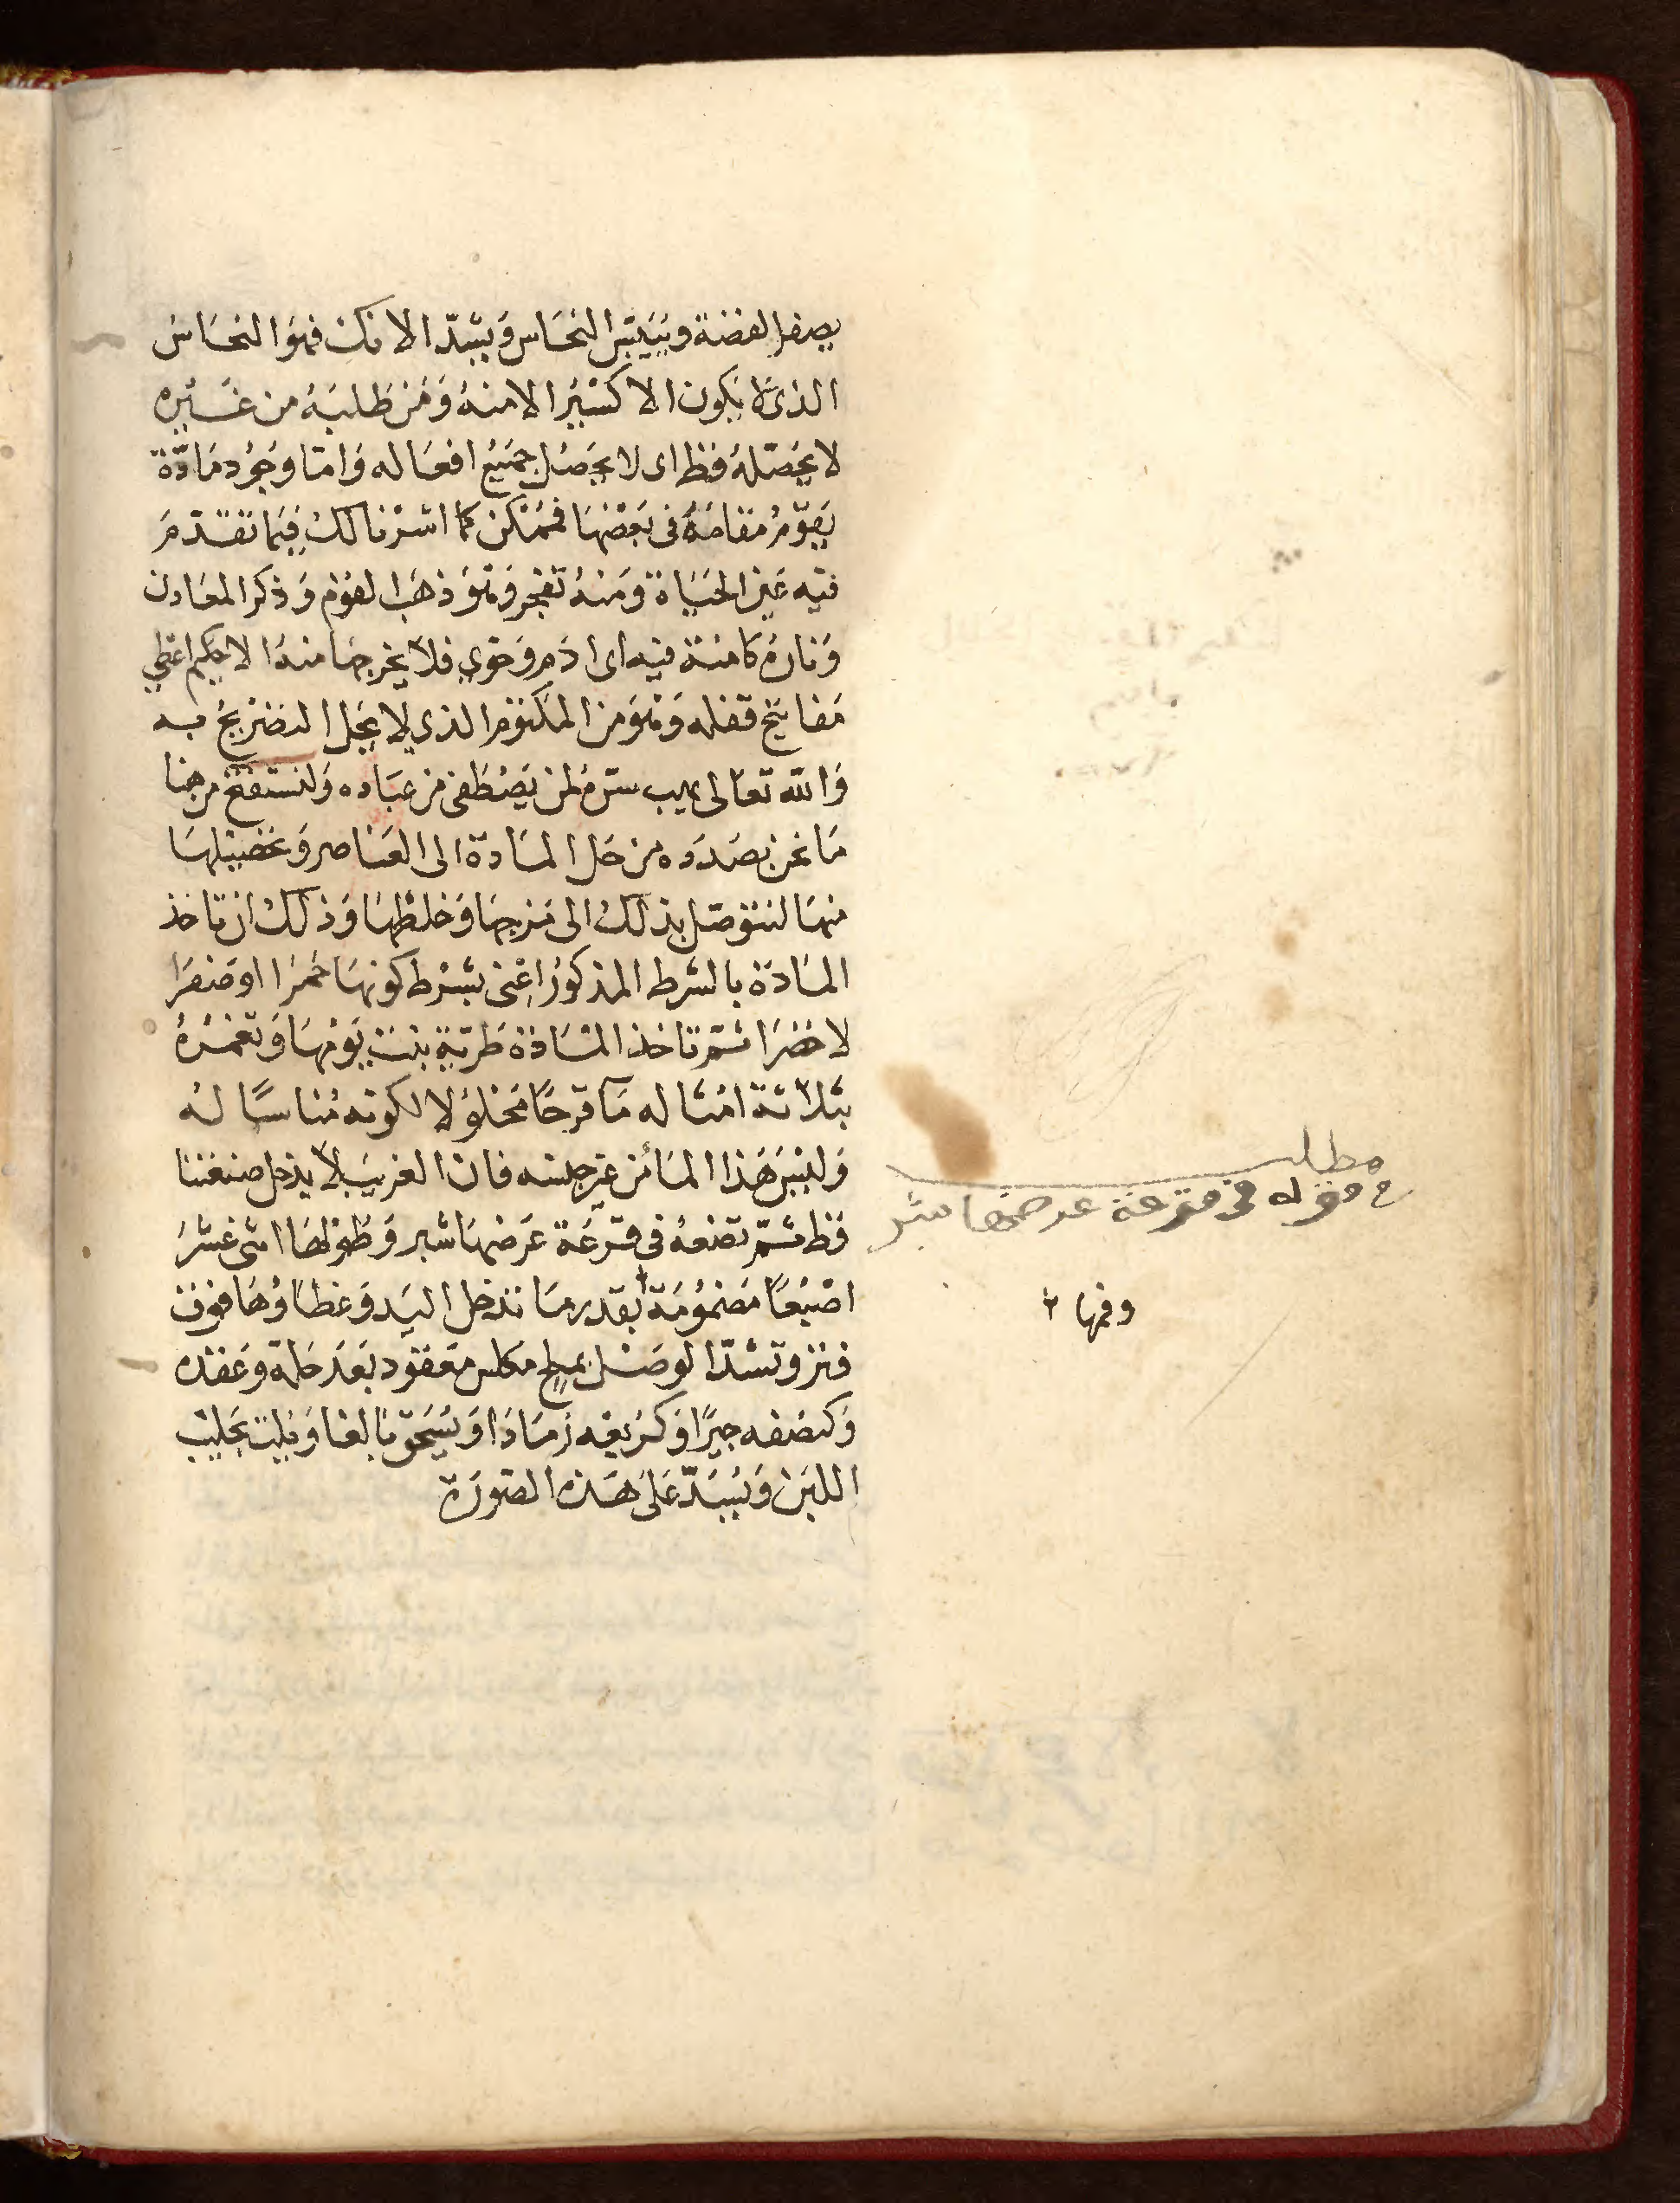 يصفر الفضة ويبيض النحاس ويشد الانك فهو النحاس
الذى لا يكون الاكسير الا منه ومن طلبه من غيره
لا يحصله قط اى لا يحصل جميع افعاله واما وجود مادة
يقوم مقامه فى بعضها فممكن كما اشرنا لك فيما تقدم
فيه عين الحياة ومنه تفجر وهو ذهب القوم وذكر المعادن
وناره كامنة فيه اى ادم وحوى فلا يخرجها منه الا حكيم اعطى
مفاتيح قفله وهو من المكتوم الذى لا يحل التصريح به
والله تعالى يهب سره لمن يصطفى من عباده ولنستفتح من هنا
ما نحن بصدده من حل المادة الى العناصر وتحصيلها
منها لنتوصل بذلك الى مزجها وخلطها وذلك ان تاخذ
المادة بالشرط المذكور اعنى بشرط كونها حمرا او صفرا
لا خضرا ثم تاخذ المادة طرية بنت يومها وتغمره
بثلاثة امثاله ما قرحا محلولا لكونه مناسبا له
وليس هذا الماء من غير جنسه فان الغريب لا يدخل صنعتنا
قط ثم تضعه فى قرعة عرضها شبر وطولها اثنى عشر
اصبعا مضمومة بقدر ما تدخل اليد وغطاؤها فوق
وتشد الوصل بملح مكلس معقود بعد حله وعقده
وكنصفه جيرا وكربعه رمادا ويسحق بالغا ويلت بحليب
اللبن ويسد على هذه الصورة
مطلب
قوله فى قرعة عرضها شبر
وفمها ٢